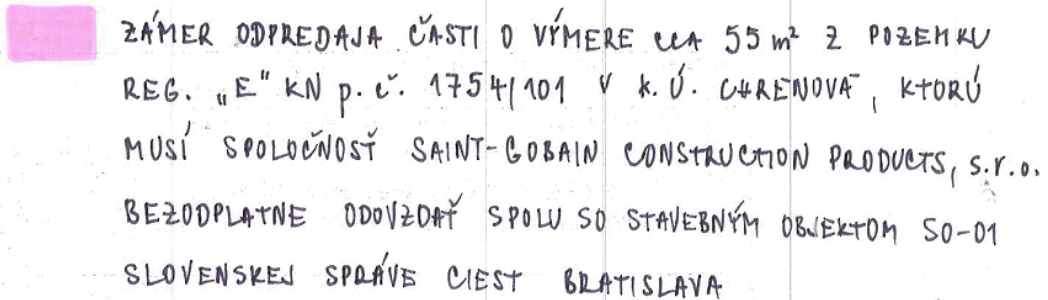 ZÁMER ODPREDAJA ČASTI O VÝMERE CCA 55 m² Z POZEMKU
REG. „E" KN p.č. 1754/101 V K.Ú. CHRENOVÁ, KTORÚ
MUSÍ SPOLOČNOSŤ SAINT-GOBAIN CONSTRUCTION PRODUCTS, s.r.o.
BEZODPLATNE ODOVZDAŤ SPOLU SO STAVEBNÝM OBJEKTOM SO-01
SLOVENSKEJ SPRÁVE CIEST BRATISLAVA